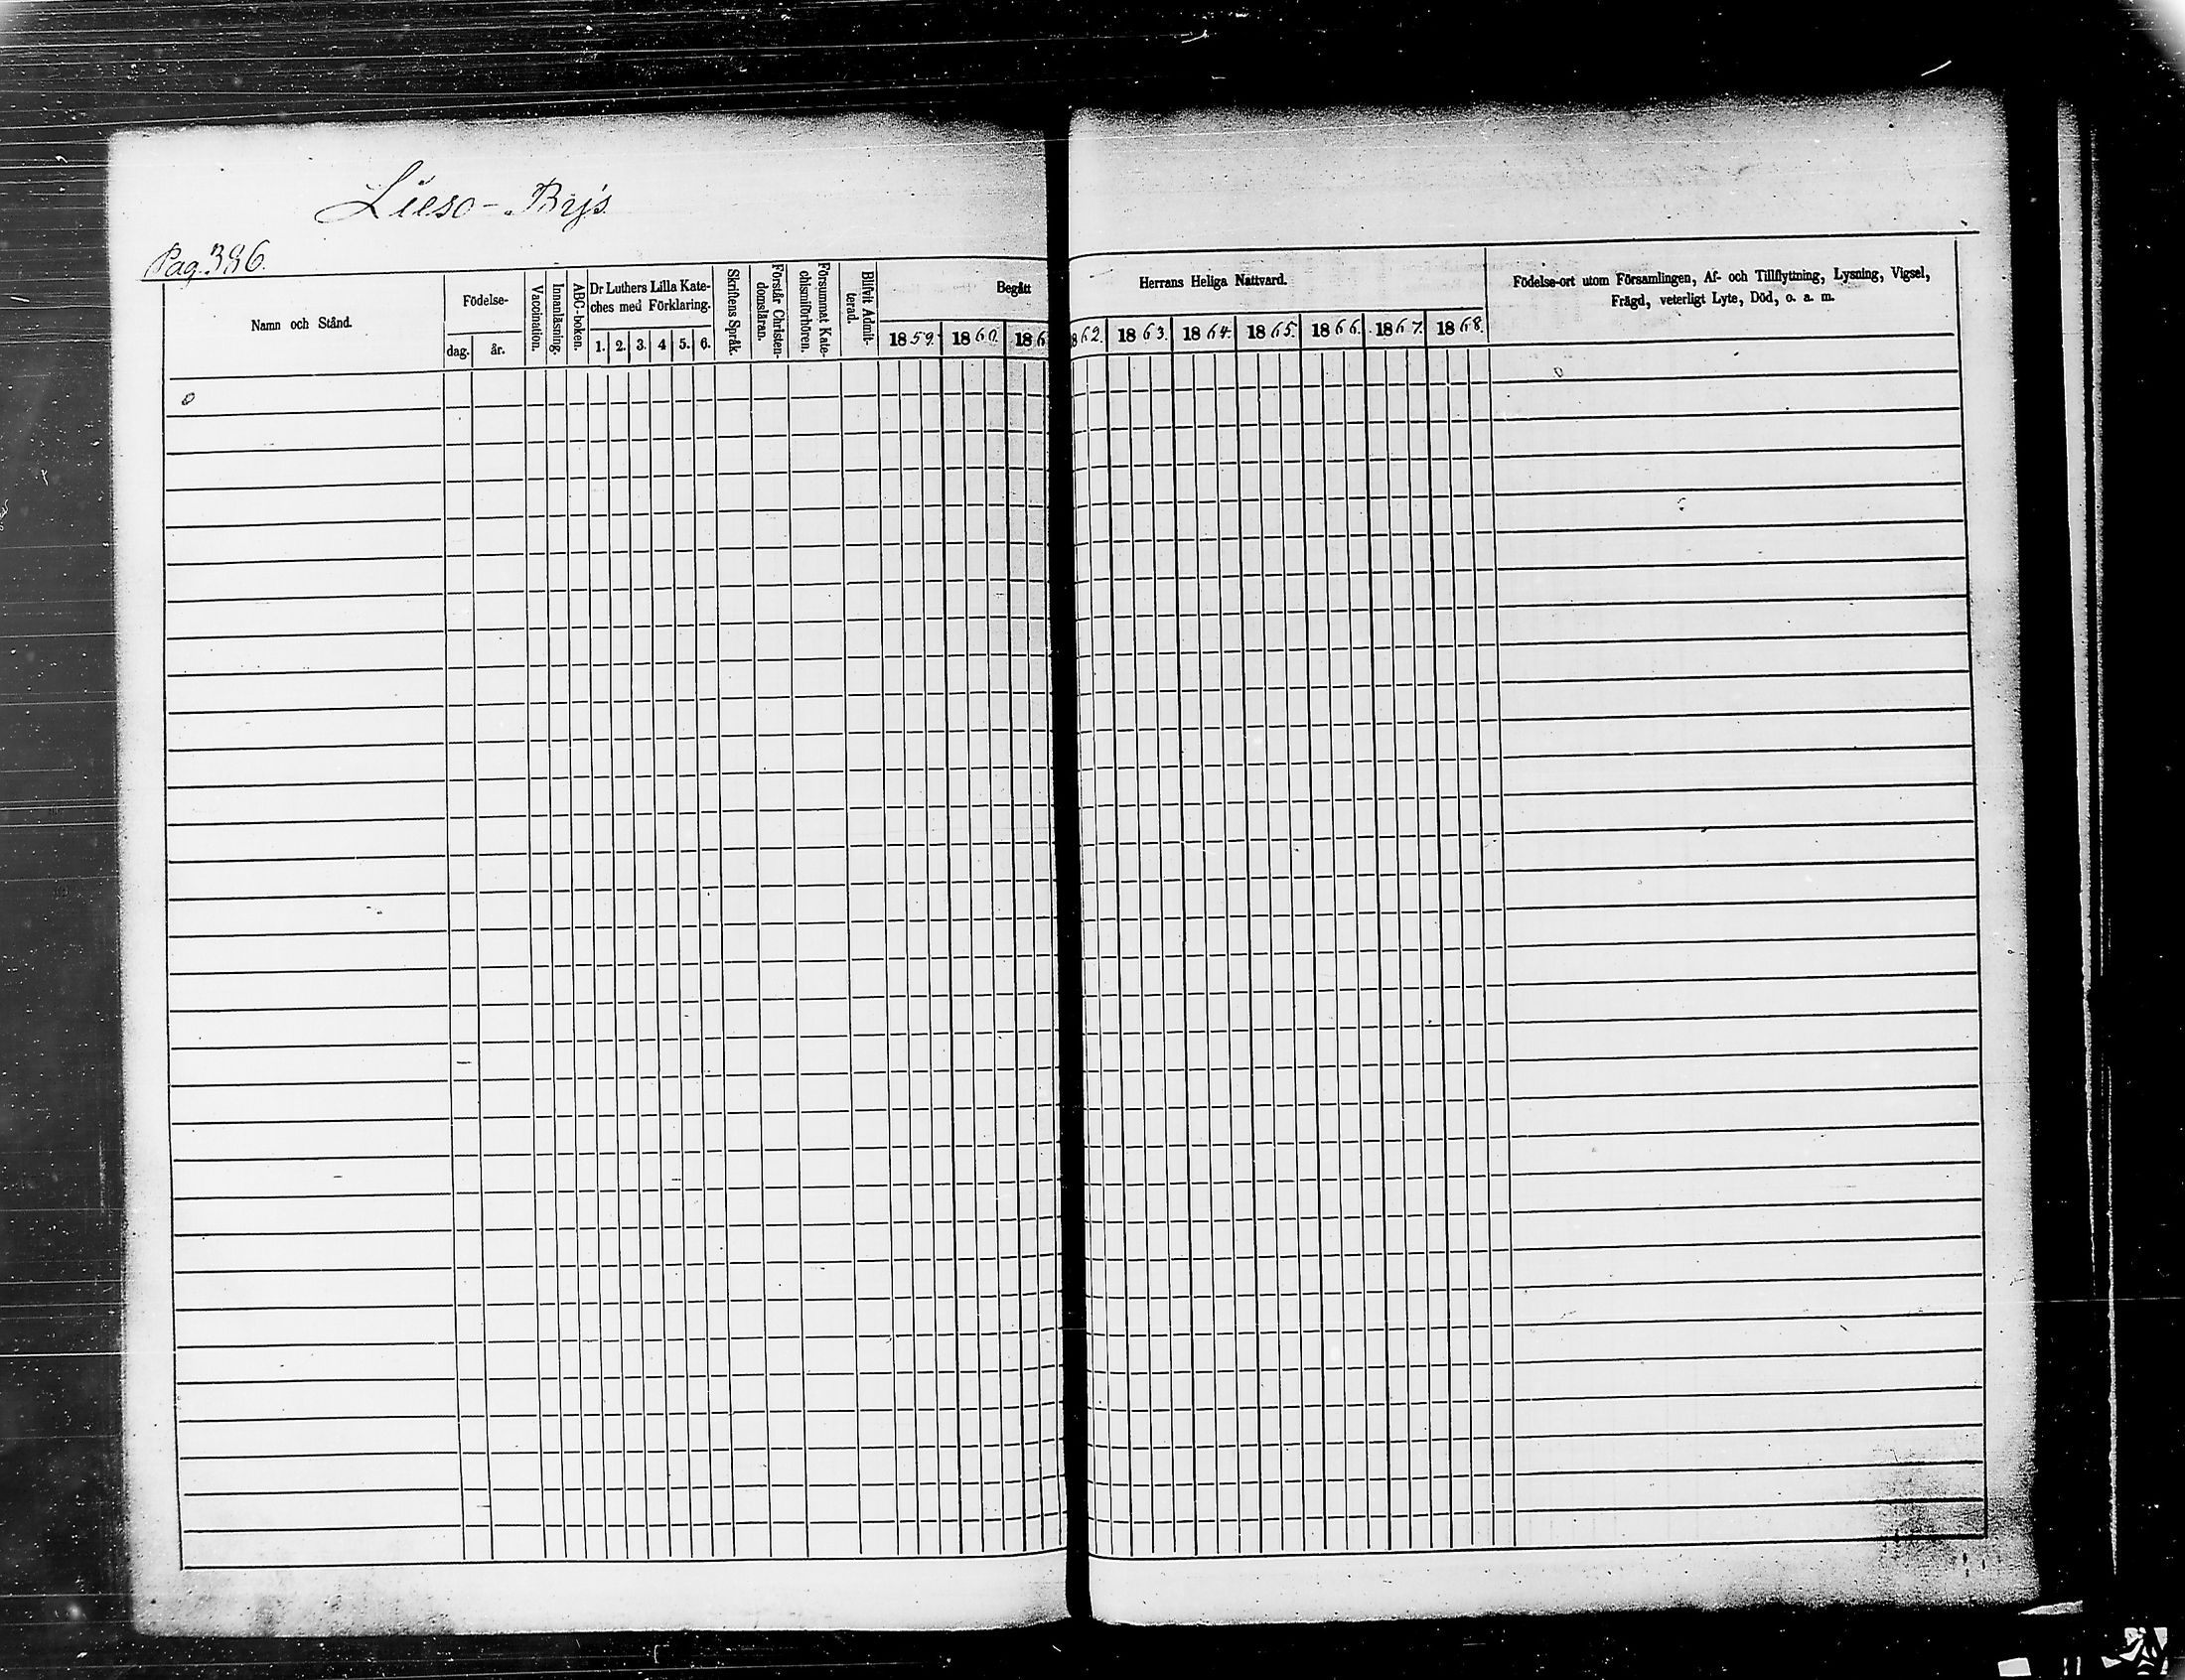 Lieso - Bys
Pag. 386.
Namn och Stånd.
Födelse-
dag. år.
Vaccination.
Innanläsning.
ABC-boken.
Dr Luthers Lilla Kate-
ches med Förklaring.
1. 2. 3. 4 5. 6.
Skriftens Språk.
Förstår Christen-
domsläran.
Försummat Kate-
chismiförhören.
Blifvit Admit-
terad.
Begått
1859. 1860. 186
Herrans Heliga Nattvard.
862. 1863. 1864. 1865. 1866. 1867. 1868.
Födelse-ort utom Församlingen, Af- och Tillflyttning, Lysning, Vigsel,
Frägd, veterligt Lyte, Död, o. a. m.